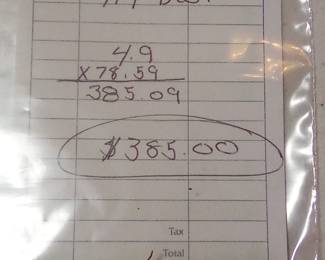 4.9
x78.59
385.09
$385.00
Tax
Total